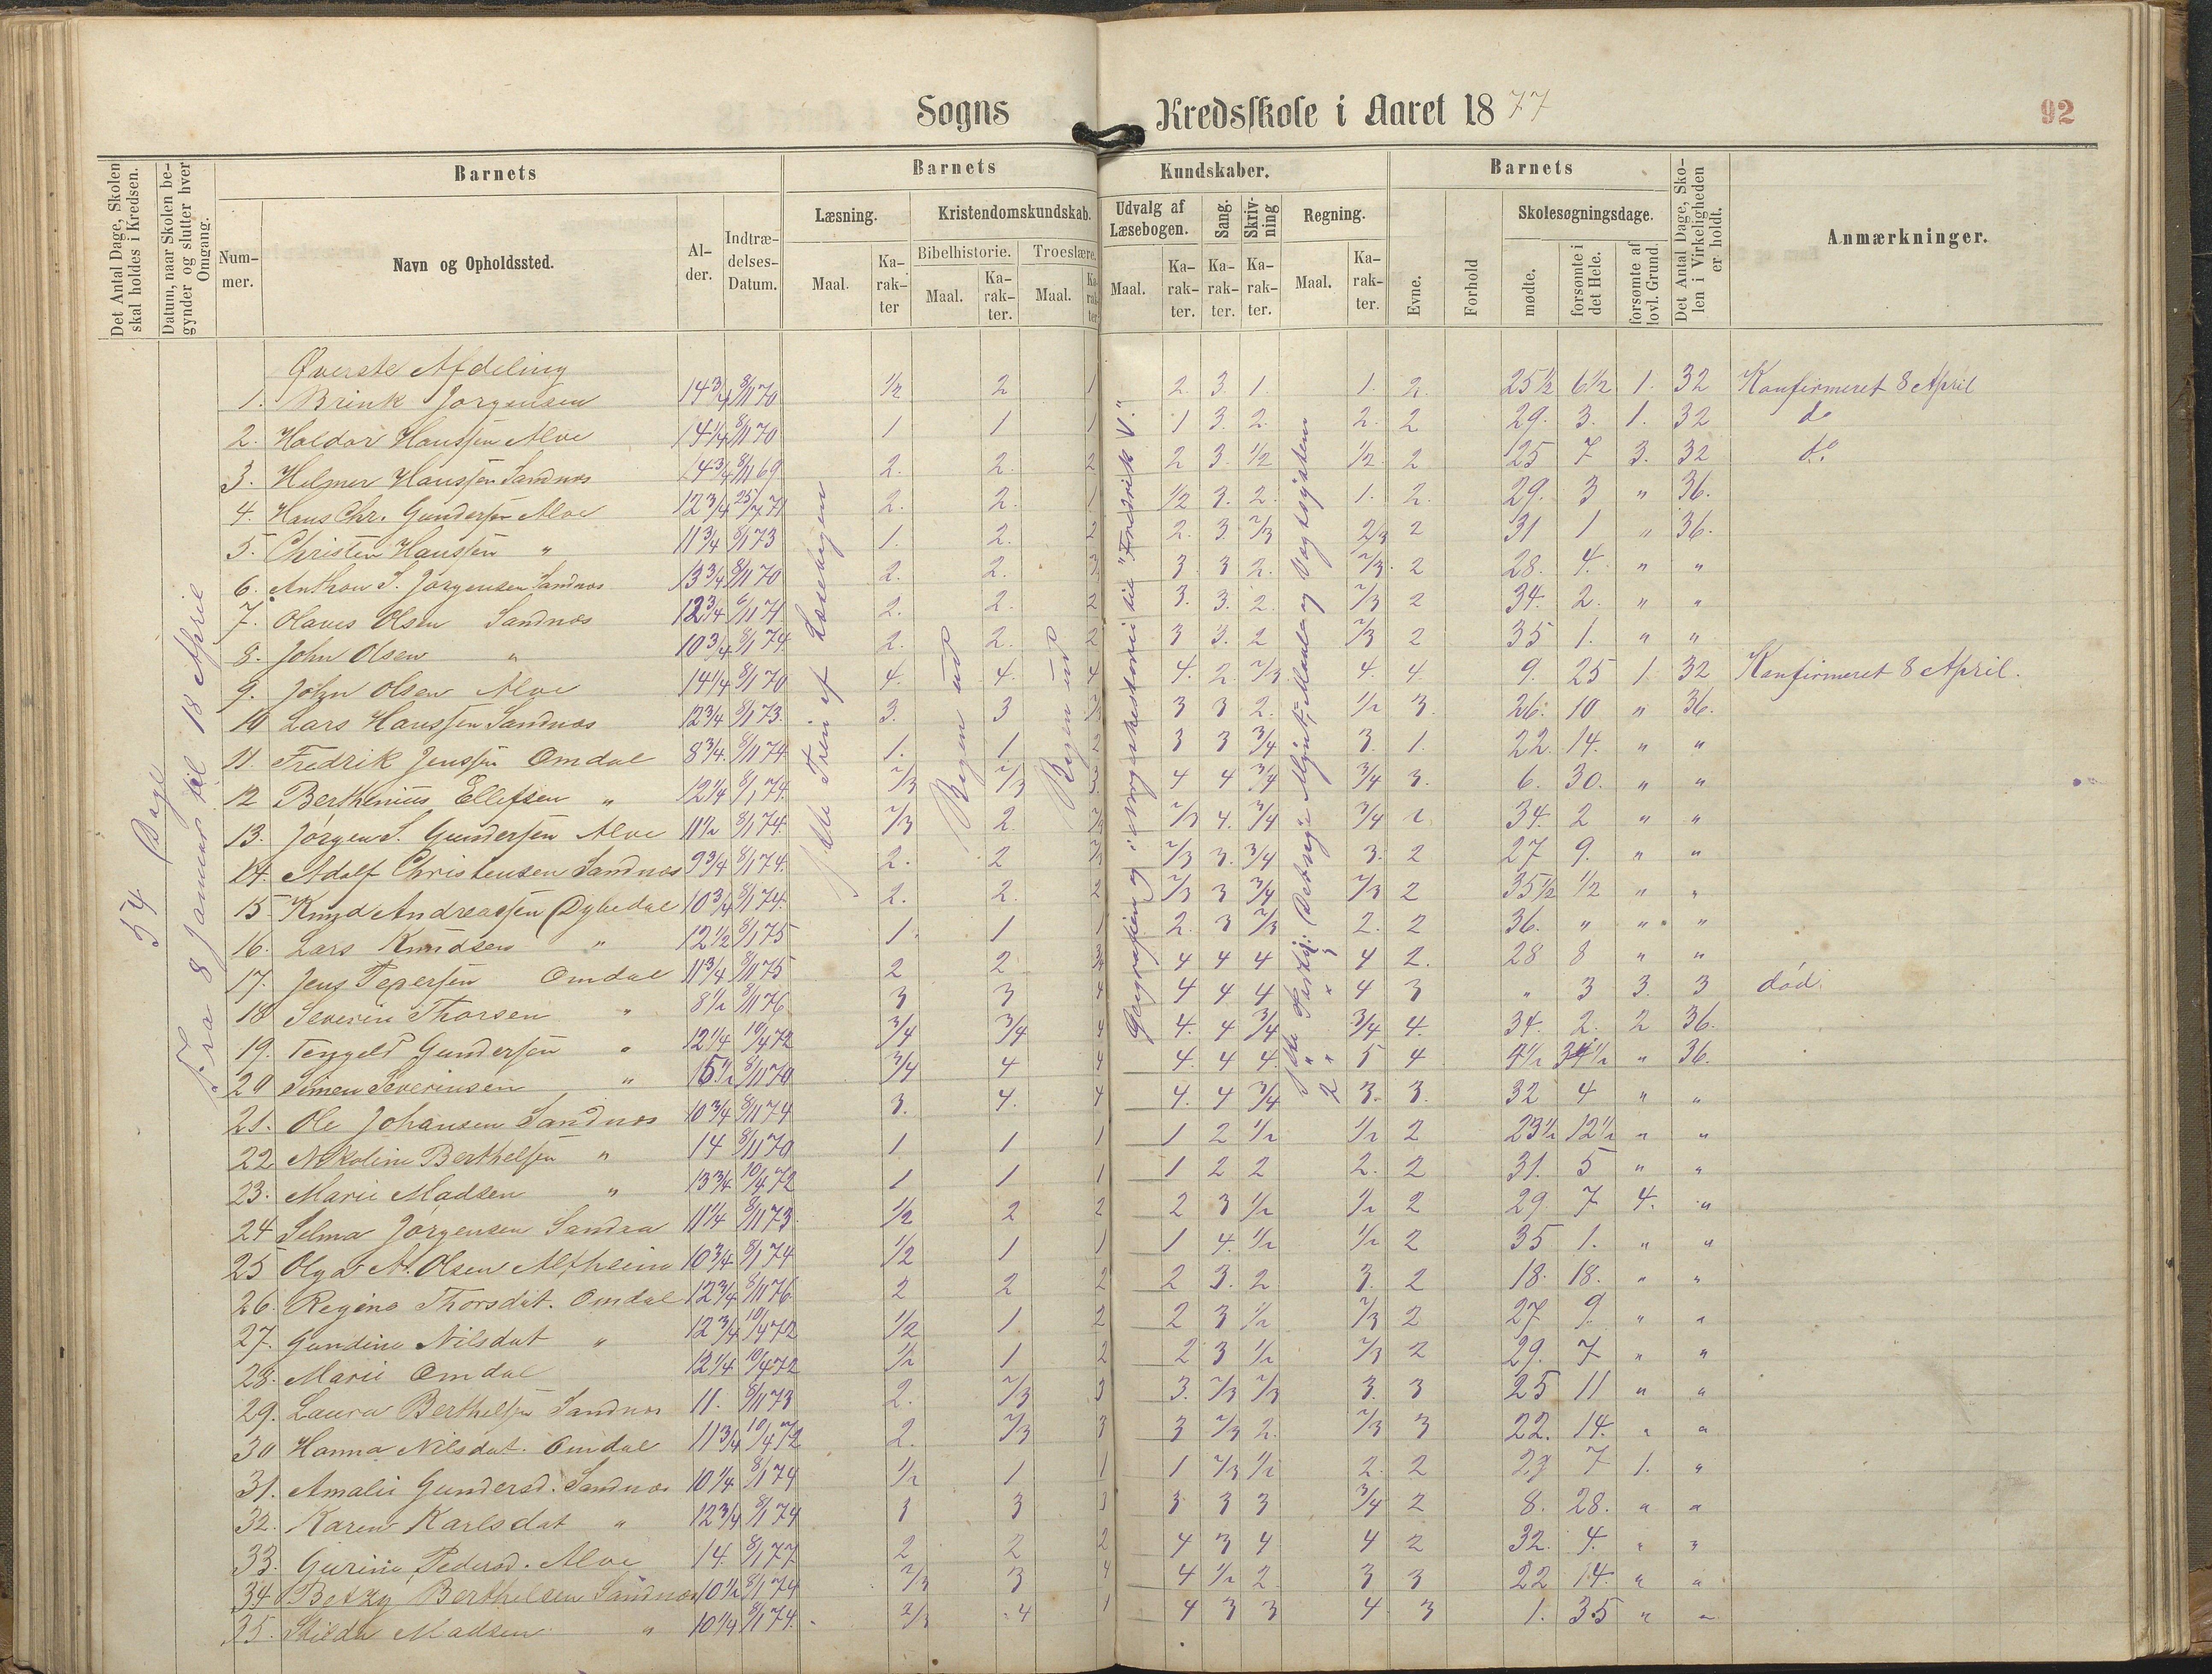 Sogns Kredsskole i Aaret 1877
92
Det Antal Dage, Skolen skal holdes i Kredsen.
Datum, naar Skolen begynder og slutter hver Omgang.
Barnets
Nummer.
Navn og Opholdssted.
Alder.
Indtrædelses-Datum.
Barnets Kundskaber.
Læsning.
Maal.
Karakter
Kristendomskundskab.
Bibelhistorie.
Maal.
Karakter.
Troeslære.
Maal.
Karakter
Udvalg af Læsebogen.
Maal.
Karakter.
Sang.
Karakter.
Skrivning
Karakter.
Regning.
Maal.
Karakter.
Barnets
Evne.
Forhold
Skolesøgningsdage.
mødte.
forsømte i det Hele.
forsømte af lovl. Grund.
Det Antal Dage, Skolen i Virkeligheden er holdt.
Anmærkninger.
54 Dage
Fra 8 Januar til 18 April
Læsebogen
Bogen ud
Bogen ud
Geografien og
til "Fredrik V."
Øverste Afdeling
1. Brink Jørgensen 14 3/4 8/1 70 1/2 2 1 2. 3. 1. 1. 2. 25 1/2 6 1/2 1. 32 Konfirmeret 8 April
2. Haldor Hanssen Alve 14 1/4 8/11 70 1 1 1 1 3. 2. 2. 2 29. 3. 1. 32 do
3. Helmer Hanssen Sandnæs 14 3/4 8/11 69 2. 2. 2 2 3. 1/2 1/2. 2 25 7 3. 32 do
4. Hans Chr. Gundersen Alve 12 3/4 25/7 71 2. 2. 1 1/2 3. 2. 1. 2. 29. 3 " 36.
5. Christen Hanssen " 11 3/4 8/1 73 1. 2. 2 2. 3. 2/3 2/3 2 31 1 " 36.
6. Anthon S. Jørgensen Sandnæs 13 3/4 8/11 70 2. 2. 3 3 3 2. 2/3. 2 28. 4. " "
7. Olaves Olsen Sandnæs 12 3/4 6/11 71 2. 2. 2 3. 3. 2. 2/3 2 34. 2. " "
8. John Olsen " 10 3/4 8/1 74 2. 2. 2 3 3. 2 2/3 2 35 1. " "
9. John Olsen Alve 14 1/4 8/1 70 4. 4. 4 4. 2. 2/3 4. 4. 9. 25 1. 32 Konfirmeret 8 April.
10 Lars Hanssen Sandnæs 12 3/4 8/1 73. 3. 3 2/3 3 3 2. 1/2 3. 26. 10 " 36.
11. Fredrik Jenssen Omdal 8 3/4. 8/11 74 1. 1 2 3 3 3/4 3. 1. 22. 14. " "
12 Berthenius Ellefsen " 12 1/4 8/1 74. 2/3 2/3 3. 4 4 3/4 3/4 3. 6. 30. " "
13. Jørgen S. Gundersen Alve 11 1/2 8/1 74. 2/3 2. 2/3 2/3 4. 3/4 3/4 34. 2 " "
14. Adolf Christensen Sandnæs 9 3/4 8/1 74. 2. 2 2/3 2/3 3. 3/4 3. 2 27 9. " "
15. Knud Andreassen Dybedal 10 3/4 8/1 74. 2. 2. 2 2/3 3 3/4 2/3 2 35 1/2 1/2 " "
16. Lars Knudsen " 12 1/2 8/1 75 1. 1 1 2. 3 2/3 2. 2 36. " " "
17. Jens Pedersen Omdal 11 3/4 8/11 75 2 2 3/4 4 4 4 4 2. 28 8 " "
18 Severin Thorsen " 8 1/2 8/11 76 3 3 4 4 4 4 4 3 " 3 3. 3 død.
19. Tengeld Gundersen " 12 1/4 10/4 72 3/4 3/4 4 4. 4 3/4 3/4 4. 34. 2. 2 36.
20 Simen Severinsen " 15 1/2 8/11 70 3/4 4 4 4. 4. 4. 5 4 4 1/2 34 1/2 " 36.
21. Ole Johansen Sandnæs 10 3/4 8/11 74 3. 4. 4 4. 4 3/4 3. 3. 32 4 " "
22 Nikoline Berthelsen " 14 8/11 70 1 1 1 1 2 1/2 1/2 2 23 1/2 12 1/2 " "
23. Marie Madsen " 13 3/4 10/4 72 1 1 1 1 2 2 2. 2 31. 5 " "
24 Selma Jørgensen 11 1/4 8/11 73 1/2 2 2 2 3 1/2 1/2 2 29. 7 4. "
25 Olga A. Olsen Altheim 10 3/4 8/1 74 1/2 1 1 1 4. 1/2 1/2 2 35 1. " "
26. Regina Thorsdat. Omdal 12 3/4 8/11 76 2 2 2 2 3. 2 3. 2 18. 18. " "
27. Gundine Nilsdat " 12 3/4 10/4 72 1/2 1 2 2 3 1/2 2/3 2 27 9. " "
28. Marie Omdal 12 1/4 10/4 72 1/2 1 2 2 3 1/2 2/3 2 29. 7 " "
29. Laura Berthelsen Sandnæs 11. 8/11 73 2. 2/3 3 3. 2/3 2/3 3. 3 25 11 " "
30 Hanna Nilsdat. Omdal 11 3/4 10/4 72 2. 2/3 3 3 2/3 2. 2/3 3 22. 14. " "
31. Amalie Gundersd. Sandnæs 10 1/4 8/1 74 1/2 1 1 1 2/3 1/2 2. 2 29 7 1. "
32. Karen Karlsdat " 12 3/4 8/1 74 3 3 3 3 3 3 3/4 2 8. 28. " "
33. Gurine Pedersd. Alve 14. 8/1 77 2 2 2 4 3 4 4 2 32. 4. " "
34 Betzy Berthelsen Sandnæs 10 1/2 8/1 74 2/3 3 4 4 1/2 2. 3 3 22 14. " "
35. Hilda Madsen " 10 1/4 8/1 74. 2/3 4 1 4 3 3 4 3 1. 35 " "